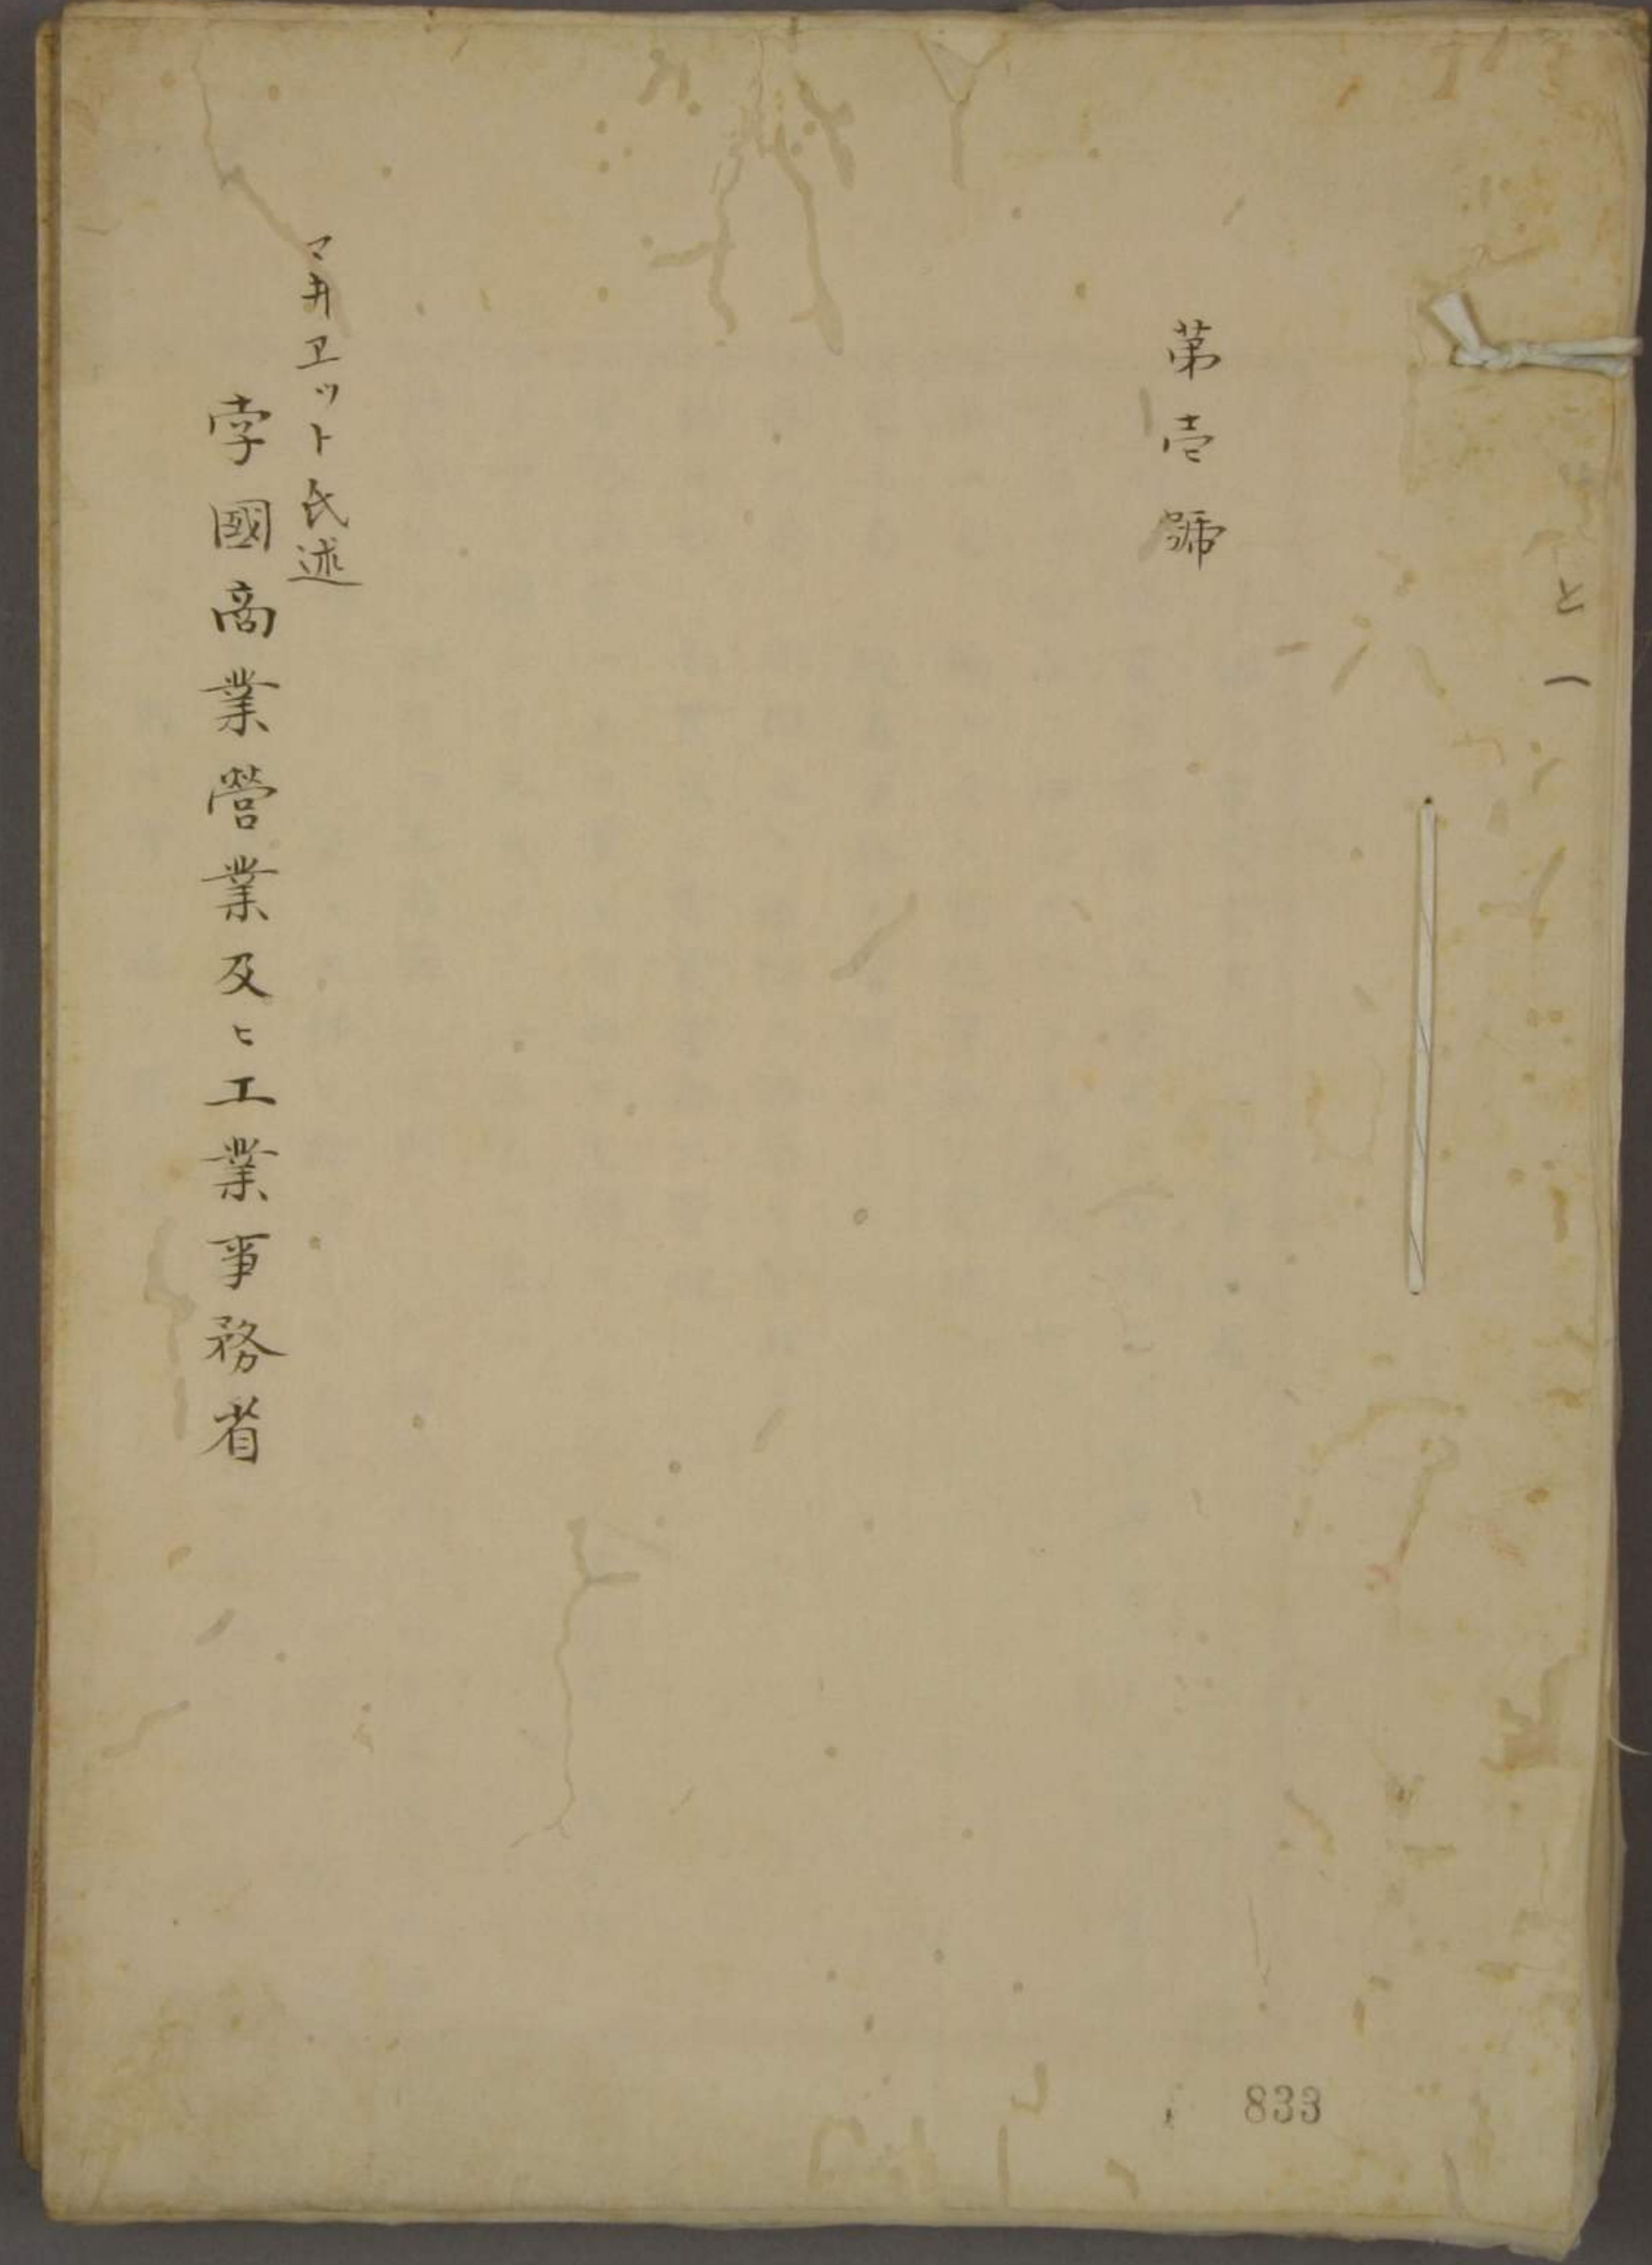 と一
第壱號
マヰヱット氏述
孛國商業營業及ヒ工業事務省
833